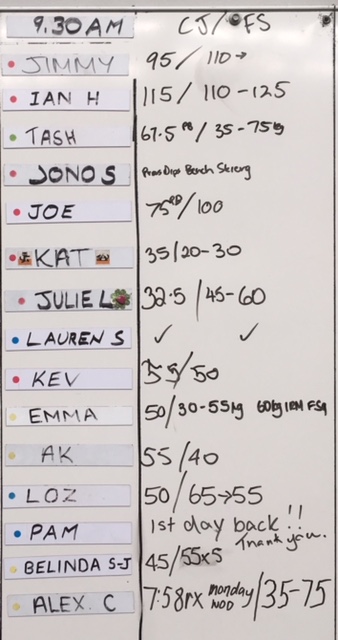 9.30AM CJ/FS
JIMMY 95/110→
IAN H 115/110-125
TASH 67.5 PB/35-75kg
JONO S Press Dips Bench Skierg
JOE 75/100
KAT 35/20-30
JULIE L 32.5/45-60
LAUREN S ✓ ✓
KEV 55/50
EMMA 50/30-55kg 60kg 1RM FSq
AK 55/40
LOZ 50/65→55
PAM 1st day back!! Thank you.
BELINDA S-J 45/55x5
ALEX. C 7:58rx monday WOD/35-75